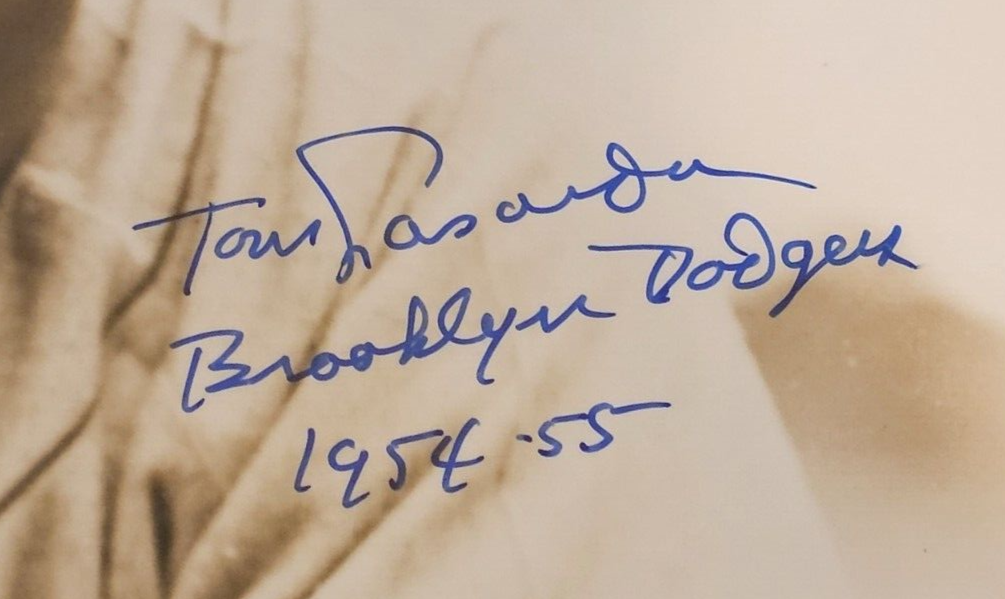 Tom Lasorda
Brooklyn Dodgers
1954-55